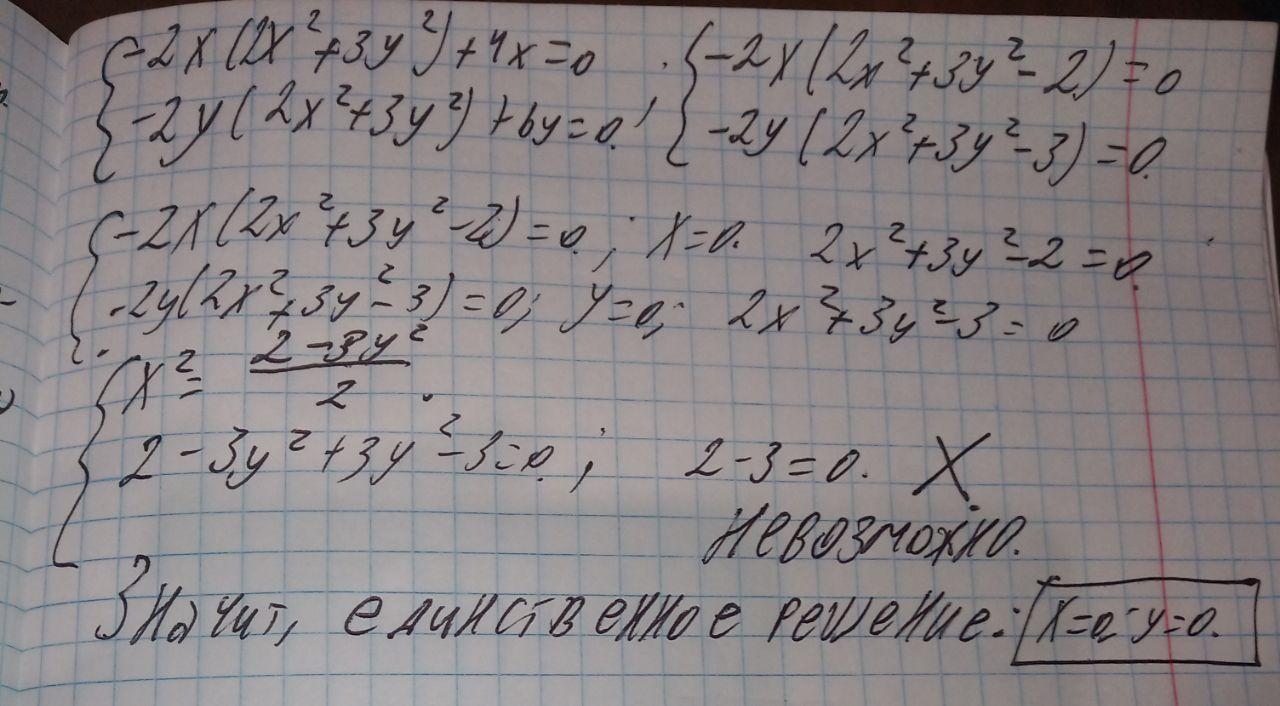 {-2x(2x²+3y²)+4x=0 ; {-2x(2x²+3y²-2)=0
-2y(2x²+3y²)+6y=0. -2y(2x²+3y²-3)=0.
{-2x(2x²+3y²-2)=0; x=0. 2x²+3y²-2=0.
-2y(2x²+3y²-3)=0; y=0; 2x²+3y²-3=0
{x²=(2-3y²)/2.
2-3y²+3y²-3=0; 2-3=0. X
Невозможно.
Значит, единственное решение: x=0, y=0.